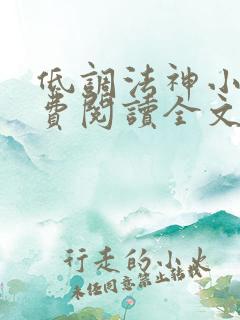 低調法神小
費閱讀全文
行走的小火
未经同意禁止转载